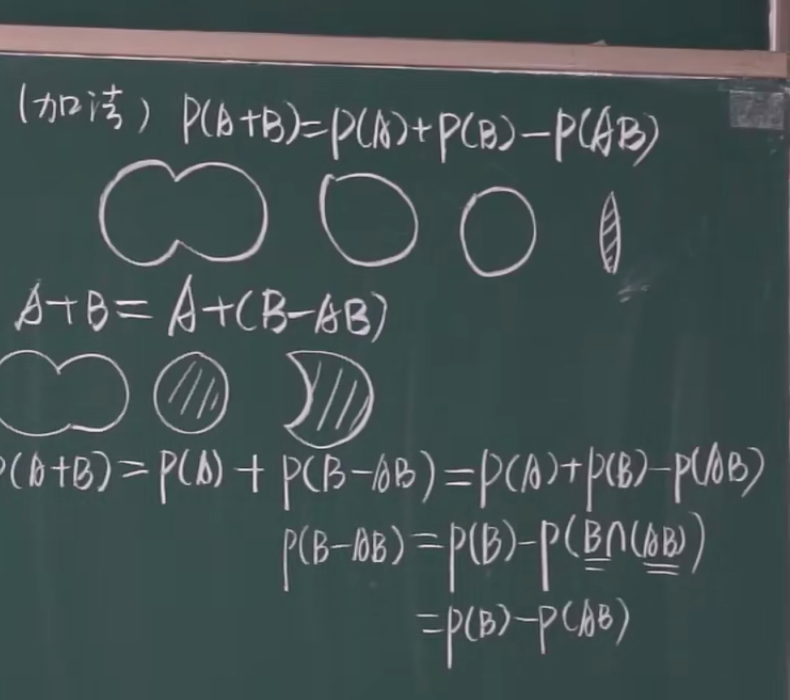 (加法) P(A+B)=P(A)+P(B)-P(AB)
A+B=A+(B-AB)
P(A+B)=P(A)+P(B-AB)=P(A)+P(B)-P(AB)
P(B-AB)=P(B)-P(B∩(AB))
=P(B)-P(AB)